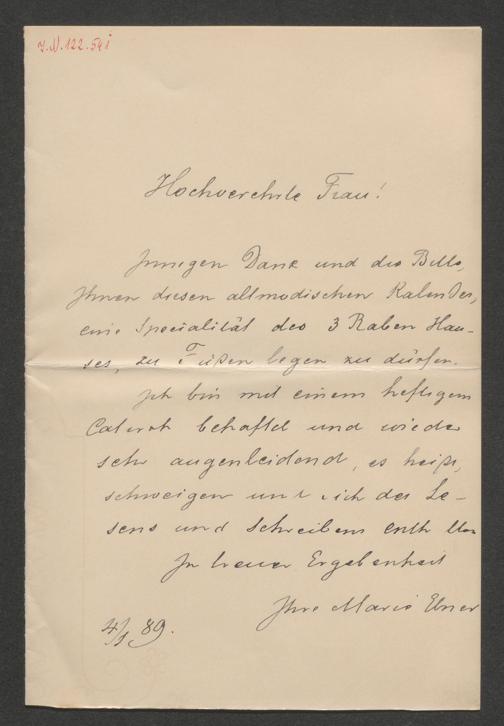 J.N. 122.541
Hochverehrte Frau!
Innigen Dank und die Bitte,
Ihnen diesen altmodischen Kalender,
eine Specialität des 3 Raben Hau-
ses, zu Füßen legen zu dürfen.
Ich bin mit einem heftigem
Catarrh behaftet und wieder
sehr augenleidend, es heißt,
schweigen und sich des Le-
sens und Schreibens enthalten
In treuer Ergebenheit
Ihre Marie Ebner
4/1 89.